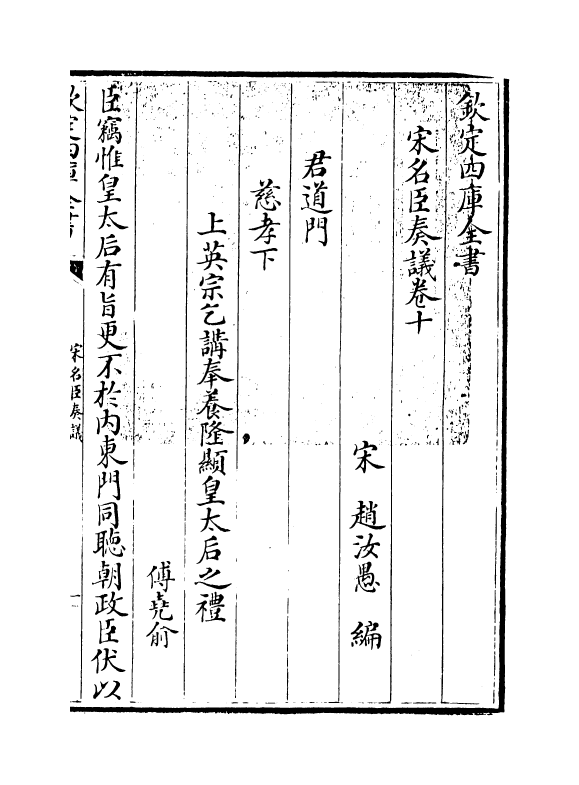 欽定四庫全書
宋名臣奏議卷十
宋 趙汝愚 編
君道門
慈孝下
上英宗乞講奉養隆顯皇太后之禮
傅堯俞
臣竊惟皇太后有旨更不於内東門同聽朝政臣伏以
欽定四庫全書
宋名臣奏議
一